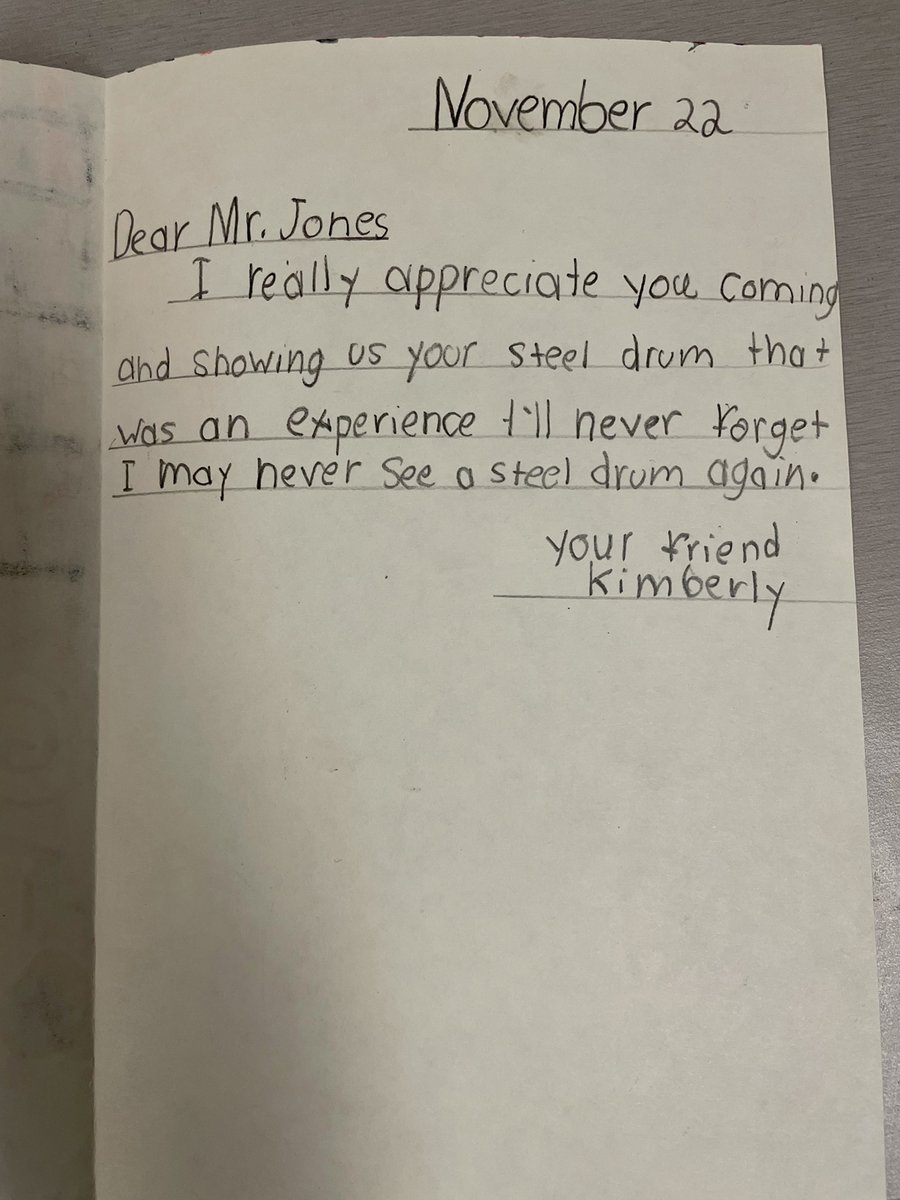 November 22
Dear Mr. Jones
I really appreciate you coming
and showing us your steel drum that
was an experience I'll never forget
I may never see a steel drum again.
your friend
Kimberly